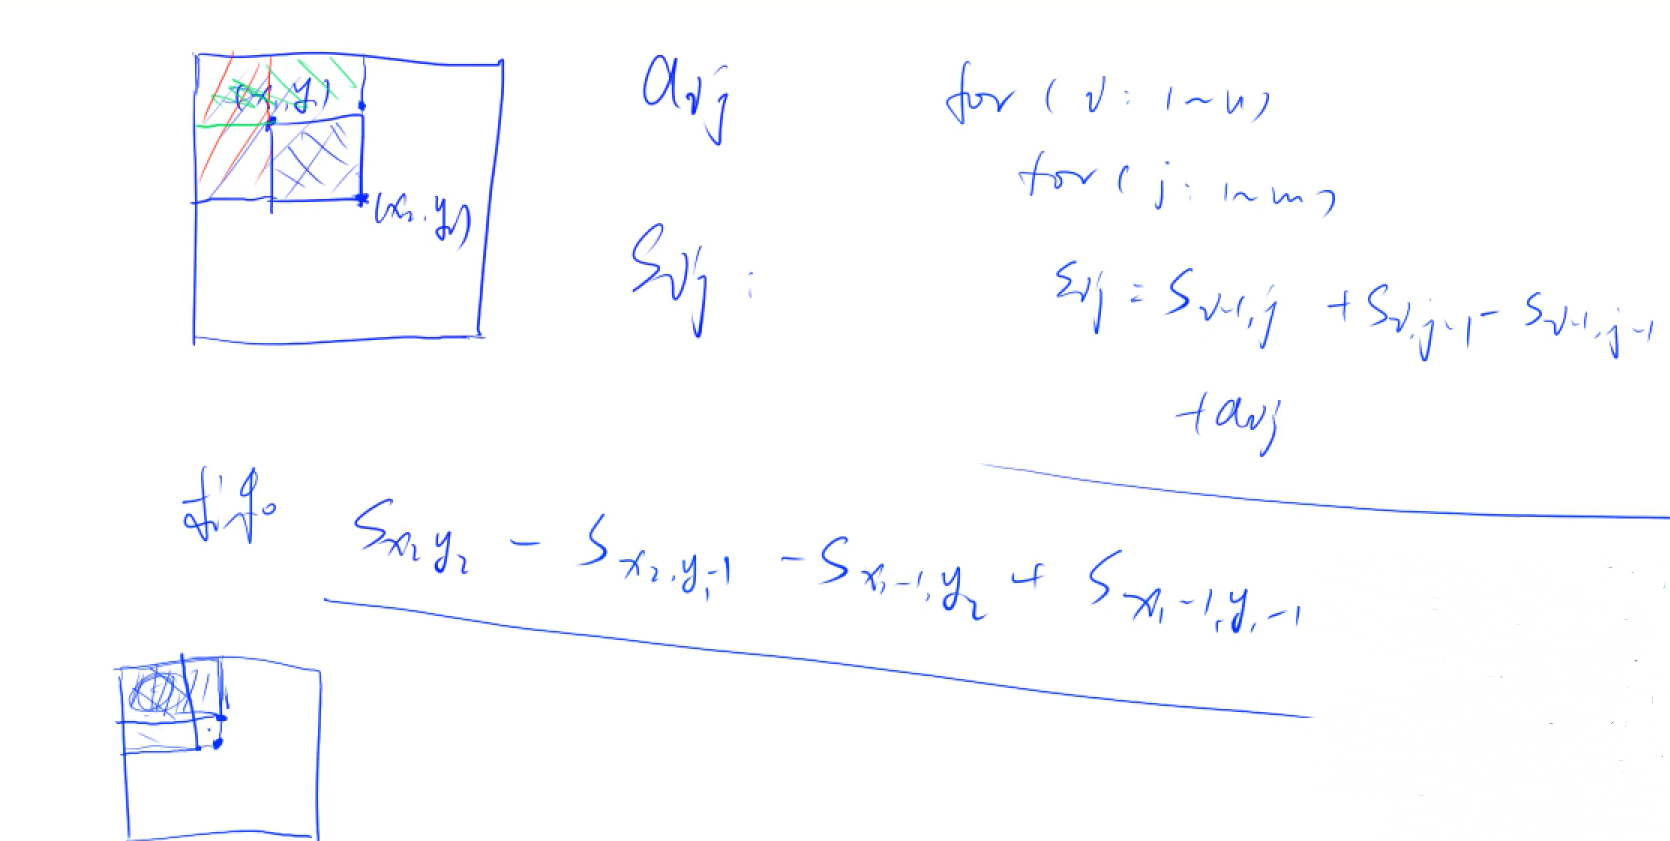 (x₁, y₁)
(x₂, y₂)
aij
Sij :
for ( i : 1~n )
for ( j : 1~m )
Sij = Si-1,j + Si,j-1 - Si-1,j-1
+ aij
Sx₂y₂ - Sx₂,y₁-1 - Sx₁-1,y₂ + Sx₁-1,y₁-1